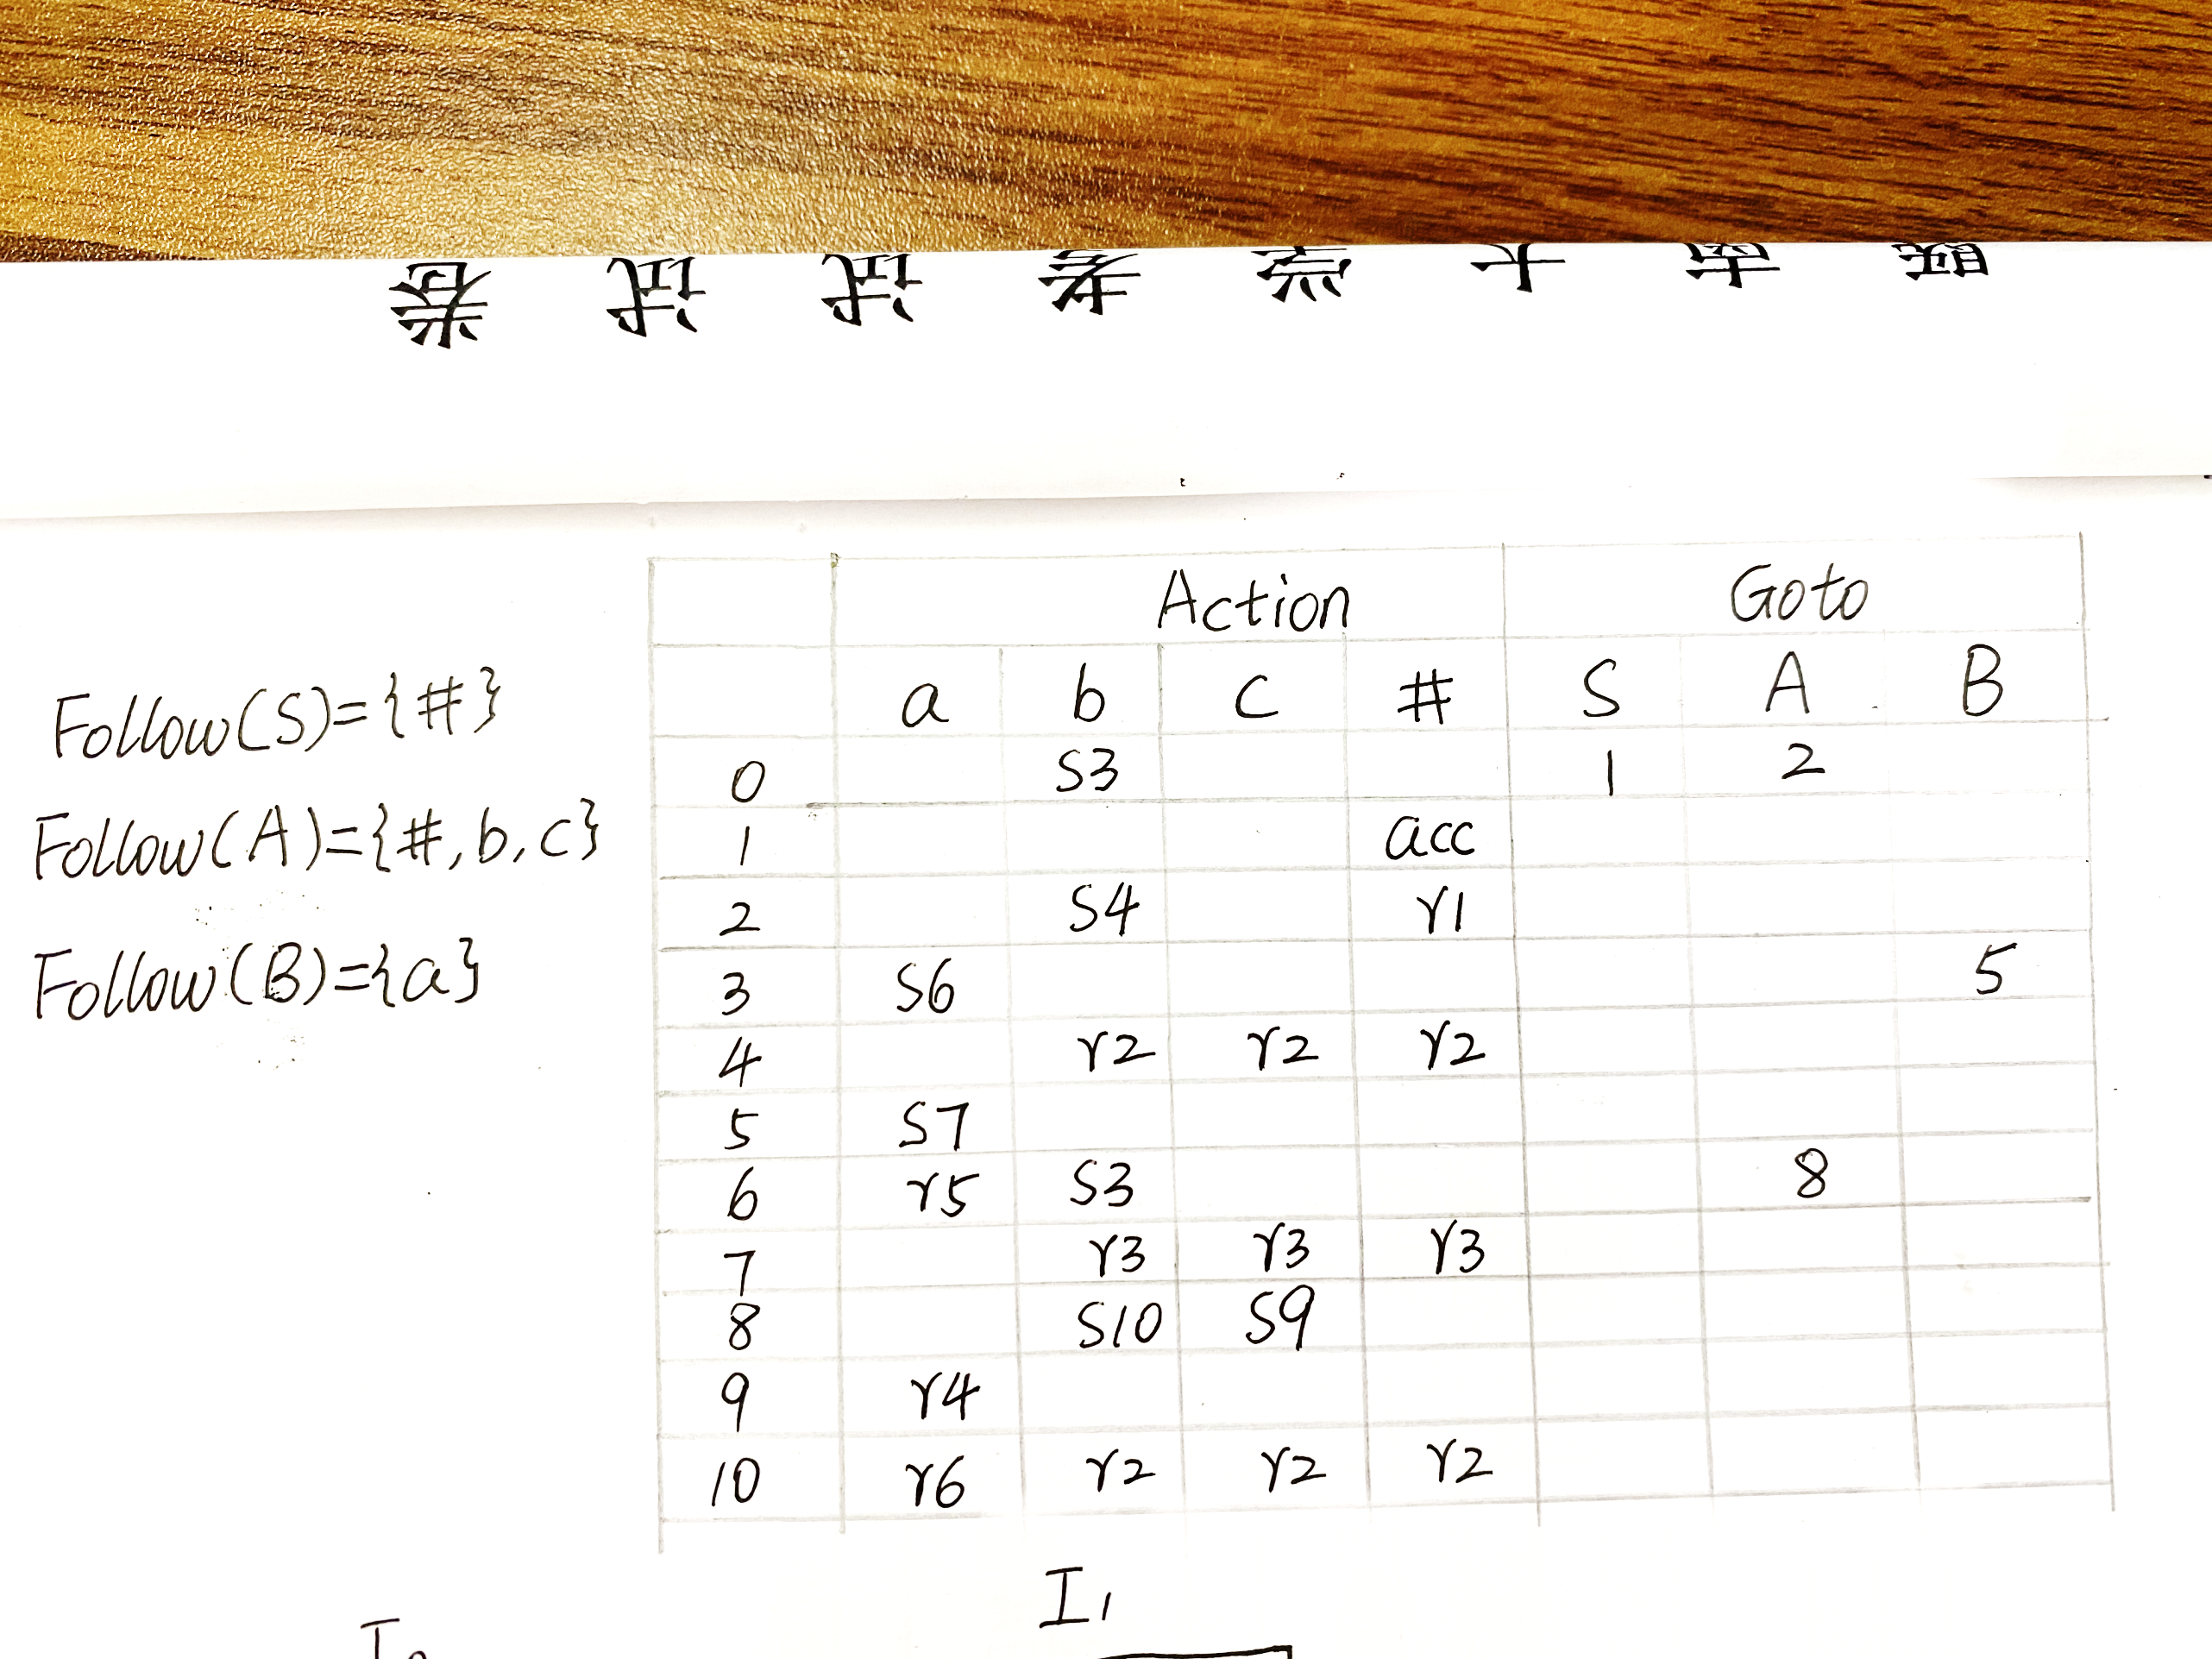 Follow(S)={#}
Follow(A)={#,b,c}
Follow(B)={a}
Action Goto
a b c # S A B
0 S3 1 2
1 acc
2 S4 r1
3 S6 5
4 r2 r2 r2
5 S7
6 r5 S3 8
7 r3 r3 r3
8 S10 S9
9 r4
10 r6 r2 r2 r2
I1